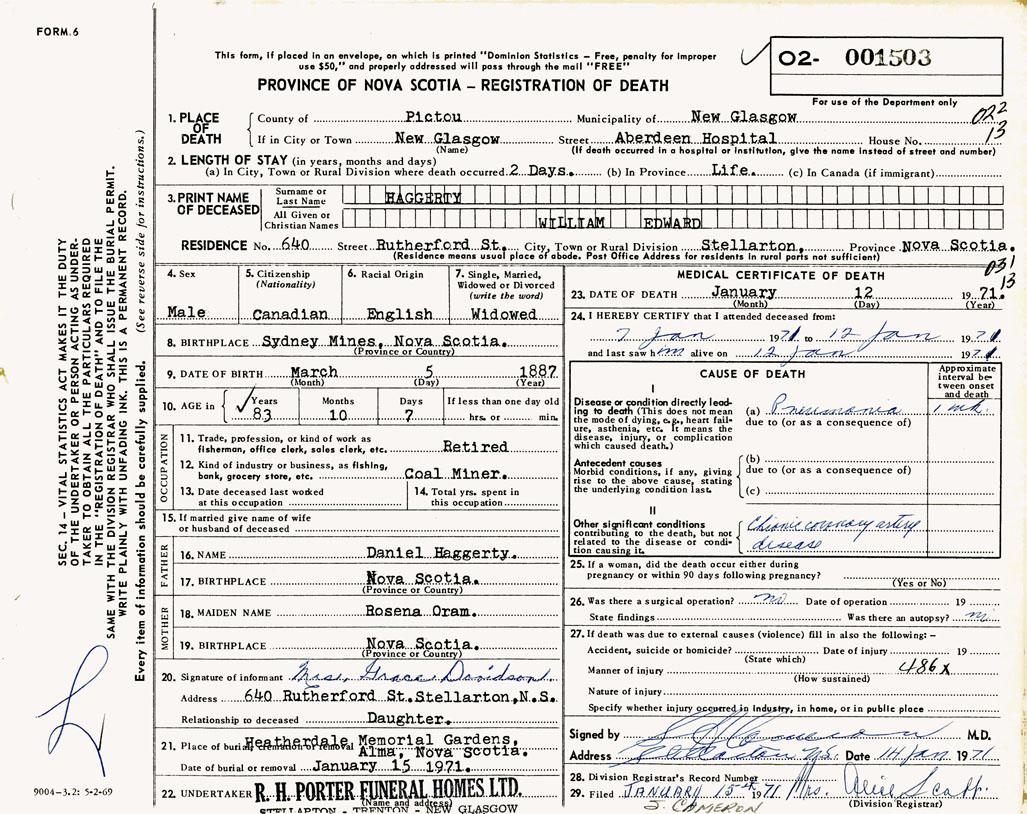 FORM.6
This form, if placed in an envelope, on which is printed "Dominion Statistics – Free, penalty for improper
use $50," and properly addressed will pass through the mail "FREE"
PROVINCE OF NOVA SCOTIA – REGISTRATION OF DEATH
O2- 001503
For use of the Department only
022
13
1. PLACE OF DEATH
County of Pictou Municipality of New Glasgow
If in City or Town New Glasgow Street Aberdeen Hospital House No.
(Name) (If death occurred in a hospital or institution, give the name instead of street and number)
2. LENGTH OF STAY (in years, months and days)
(a) In City, Town or Rural Division where death occurred 2 Days. (b) In Province Life. (c) In Canada (if immigrant)
3. PRINT NAME OF DECEASED
Surname or Last Name HAGGERTY
All Given or Christian Names WILLIAM EDWARD
RESIDENCE No. 640 Street Rutherford St. City, Town or Rural Division Stellarton, Province Nova Scotia.
(Residence means usual place of abode. Post Office Address for residents in rural parts not sufficient)
031
13
4. Sex
Male
5. Citizenship
(Nationality)
Canadian
6. Racial Origin
English
7. Single, Married,
Widowed or Divorced
(write the word)
Widowed
8. BIRTHPLACE Sydney Mines, Nova Scotia.
(Province or Country)
9. DATE OF BIRTH March 5 1887
(Month) (Day) (Year)
10. AGE in ✓ Years Months Days If less than one day old
83 10 7 hrs. or min.
OCCUPATION
11. Trade, profession, or kind of work as
fisherman, office clerk, sales clerk, etc. Retired
12. Kind of industry or business, as fishing,
bank, grocery store, etc. Coal Miner.
13. Date deceased last worked
at this occupation
14. Total yrs. spent in
this occupation
15. If married give name of wife
or husband of deceased
FATHER
16. NAME Daniel Haggerty.
17. BIRTHPLACE Nova Scotia.
(Province or Country)
MOTHER
18. MAIDEN NAME Rosena Oram.
19. BIRTHPLACE Nova Scotia.
(Province or Country)
20. Signature of informant Mrs. Grace Davidson
Address 640 Rutherford St. Stellarton, N.S.
Relationship to deceased Daughter.
21. Place of burial, cremation or removal Heatherdale Memorial Gardens,
Alma, Nova Scotia.
Date of burial or removal January 15 1971.
22. UNDERTAKER R. H. PORTER FUNERAL HOMES LTD.
(Name and address)
STELLARTON - TRENTON - NEW GLASGOW
MEDICAL CERTIFICATE OF DEATH
23. DATE OF DEATH January 12 1971.
(Month) (Day) (Year)
24. I HEREBY CERTIFY that I attended deceased from:
7 Jan 1971 to 12 Jan 1971
and last saw him alive on 12 Jan 1971
CAUSE OF DEATH
Approximate
interval be-
tween onset
and death
I
Disease or condition directly lead-
ing to death (This does not mean
the mode of dying, e.g., heart fail-
ure, asthenia, etc. It means the
disease, injury, or complication
which caused death.)
(a) Pneumonia 1 wk.
due to (or as a consequence of)
Antecedent causes
Morbid conditions, if any, giving
rise to the above cause, stating
the underlying condition last.
(b)
due to (or as a consequence of)
(c)
II
Other significant conditions
contributing to the death, but not
related to the disease or condi-
tion causing it.
Chronic coronary artery
disease
25. If a woman, did the death occur either during
pregnancy or within 90 days following pregnancy?
(Yes or No)
26. Was there a surgical operation? no Date of operation 19
State findings Was there an autopsy? no
27. If death was due to external causes (violence) fill in also the following: –
Accident, suicide or homicide? Date of injury 19
(State which)
Manner of injury 486X
(How sustained)
Nature of injury
Specify whether injury occurred in industry, in home, or in public place
Signed by M.D.
Address Stellarton N.S. Date 14 Jan 1971
28. Division Registrar's Record Number
29. Filed JANUARY 15th 1971 Mrs. Alice Scott
J. CAMERON (Division Registrar)
SEC. 14 – VITAL STATISTICS ACT MAKES IT THE DUTY
OF THE UNDERTAKER OR PERSON ACTING AS UNDER-
TAKER TO OBTAIN ALL THE PARTICULARS REQUIRED
IN THE "REGISTRATION OF DEATH" AND TO FILE THE
SAME WITH THE DIVISION REGISTRAR WHO SHALL ISSUE THE BURIAL PERMIT.
WRITE PLAINLY WITH UNFADING INK. THIS IS A PERMANENT RECORD.
Every item of information should be carefully supplied. (See reverse side for instructions.)
9004-3.2: 5-2-69